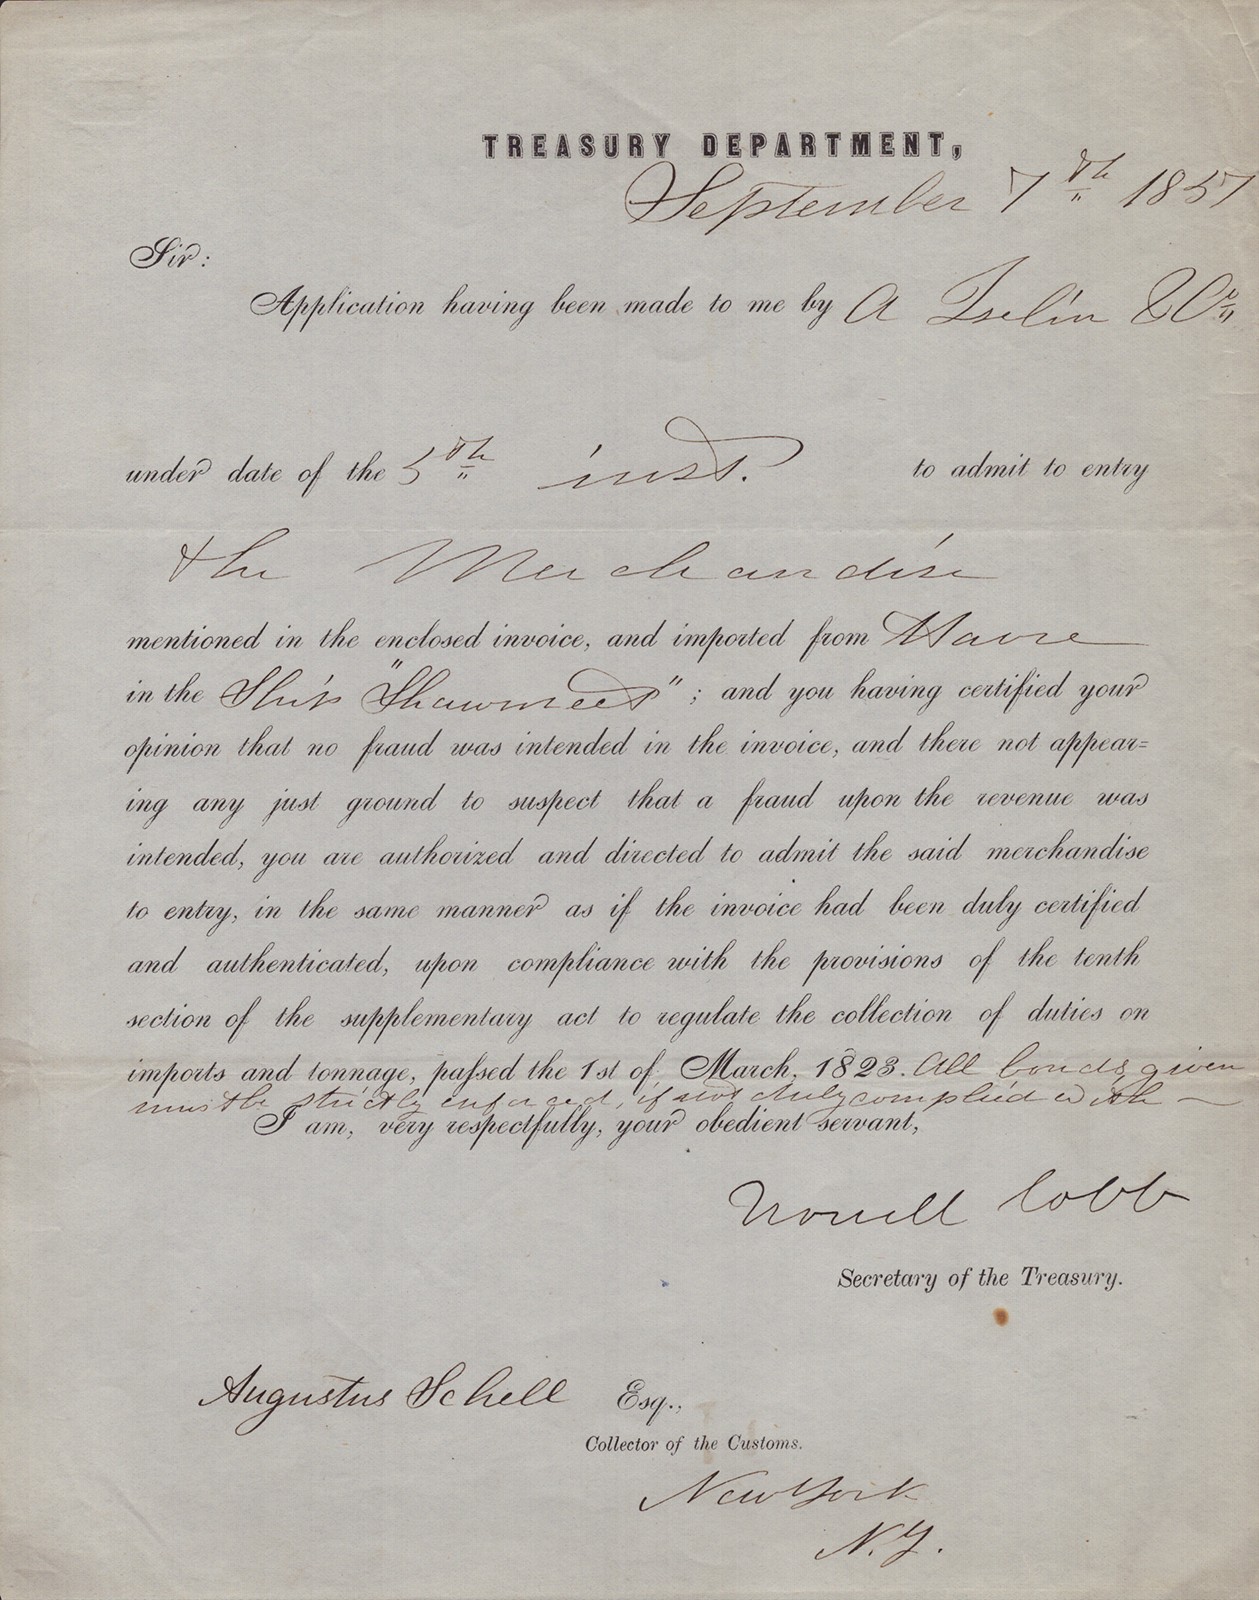 TREASURY DEPARTMENT,
September 7th 1857
Sir:
Application having been made to me by A Iselin & Co
under date of the 5th inst. to admit to entry
the Merchandise
mentioned in the enclosed invoice, and imported from Havre
in the Ship "Shawmut"; and you having certified your
opinion that no fraud was intended in the invoice, and there not appear=
ing any just ground to suspect that a fraud upon the revenue was
intended, you are authorized and directed to admit the said merchandise
to entry, in the same manner as if the invoice had been duly certified
and authenticated, upon compliance with the provisions of the tenth
section of the supplementary act to regulate the collection of duties on
imports and tonnage, paſsed the 1st of March, 1823. All bonds given
must be strictly enforced, if not duly complied with —
I am, very respectfully, your obedient servant,
Howell Cobb
Secretary of the Treasury.
Augustus Schell Esq.,
Collector of the Customs.
New York
N.Y.